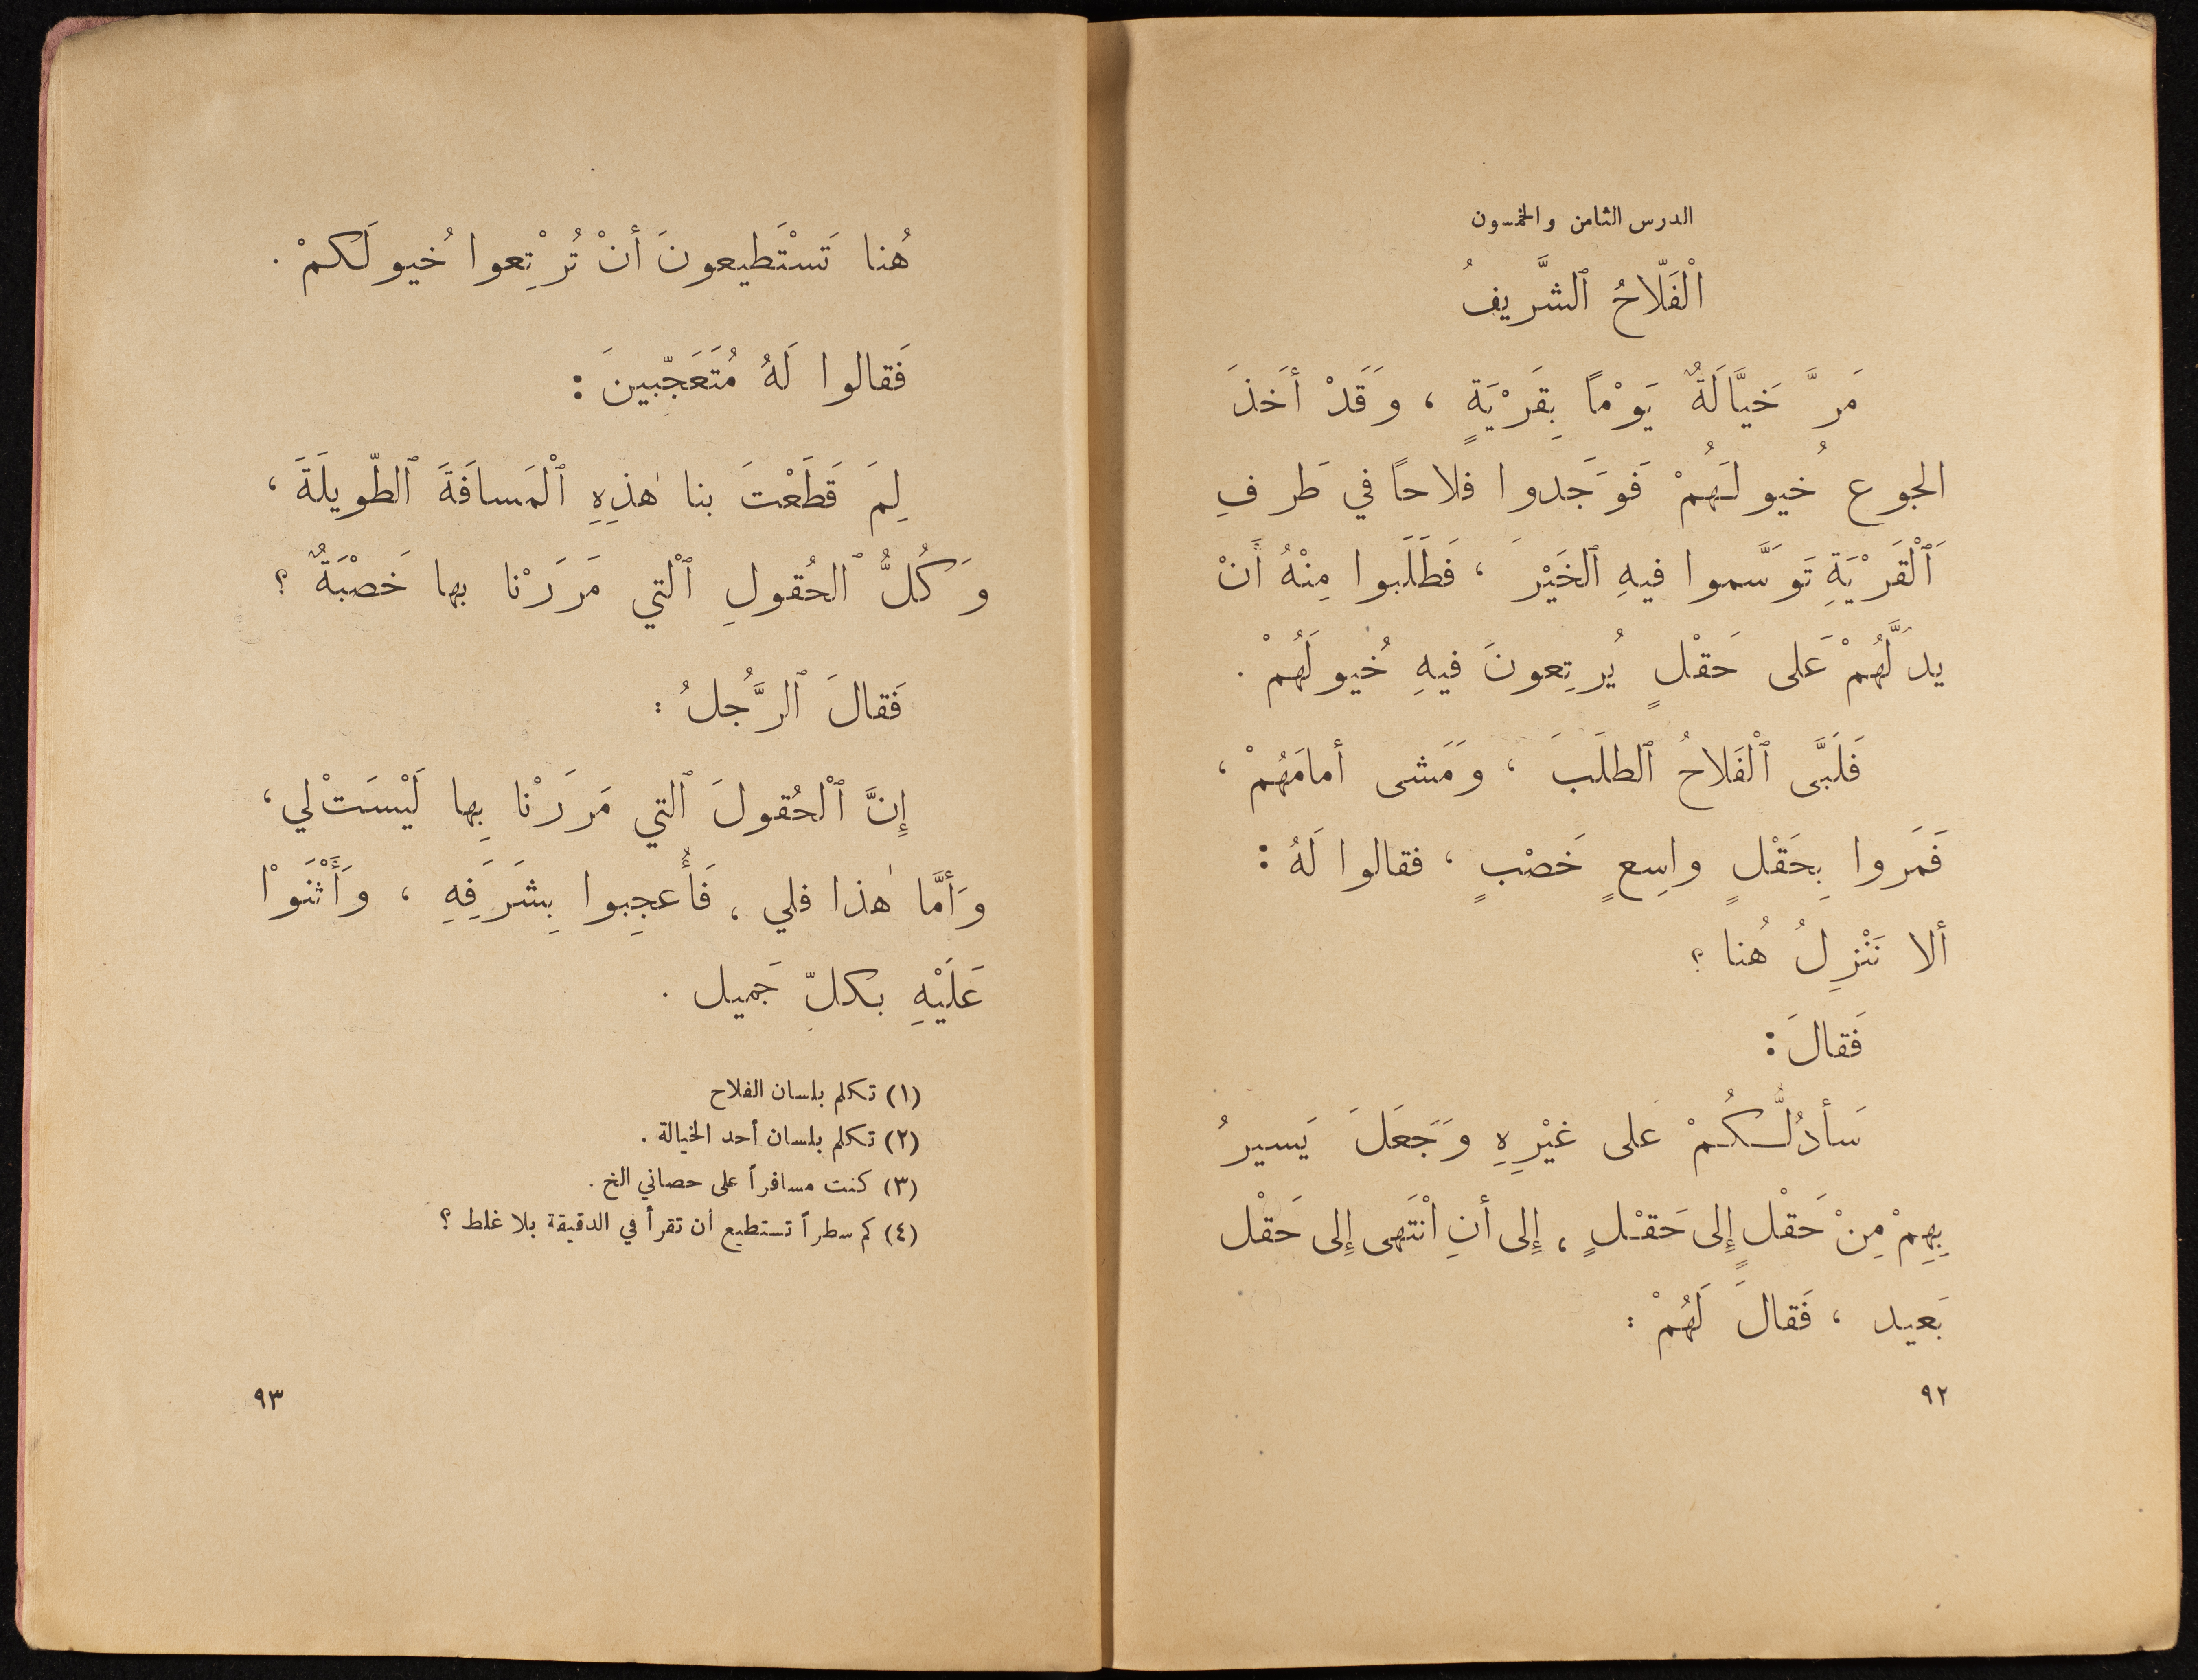 الدرس الثامن والخمسون
اَلْفَلّاحُ ٱلشَّريفُ
مَرَّ خَيَّالَةٌ يَوْماً بِقَرْيَةٍ ، وَقَدْ أَخَذَ
الجوع خُيولَهُمْ فَوَجَدوا فلاحاً في طَرفِ
ٱلْقَرْيَةِ تَوَسَّموا فيهِ ٱلخَيْرَ ، فَطَلَبوا مِنْهُ أَنْ
يدَلَّهُمْ عَلى حَقْلٍ يُرتِعونَ فيهِ خُيولَهُمْ .
فَلَبَّى ٱلْفَلاحُ ٱلطلَبَ ، وَمَشى أمامَهُمْ ،
فَمَروا بِحَقْلٍ واسِعٍ خَصْبٍ ، فقالوا لَهُ :
ألا نَنْزِلُ هُنا ؟
فَقالَ :
سَأدُلُّكُمْ عَلى غيْرِهِ وَجَعَلَ يَسيرُ
بِهِمْ مِنْ حَقْلٍ إِلى حَقْلٍ ، إِلى أنِ ٱنْتَهى إِلى حَقْل
بَعيد ، فَقالَ لَهُمْ :
٩٢
هُنا تَسْتَطيعونَ أنْ تُرْتِعوا خُيولَكمْ .
فَقالوا لَهُ مُتَعَجّبينَ :
لِمَ قَطَعْتَ بنا هٰذِهِ ٱلْمَسافَةَ ٱلطّويلَةَ ،
وَكُلُّ ٱلحُقولِ ٱلْتي مَرَرْنا بها خَصْبَةٌ ؟
فَقالَ ٱلرَّجُلُ :
إِنَّ ٱلْحُقولَ ٱلتي مَررْنا بِها لَيْسَتْ لي ،
وَأمَّا هٰذا فلي ، فَأُعجِبوا بِشَرَفِهِ ، وَأَثْنَوْا
عَلَيْهِ بكلِّ جَميل .
(١) تكلم بلسان الفلاح
(٢) تكلم بلسان أحد الخيالة .
(٣) كنت مسافراً على حصاني الخ .
(٤) كم سطراً تستطيع أن تقرأ في الدقيقة بلا غلط ؟
٩٣